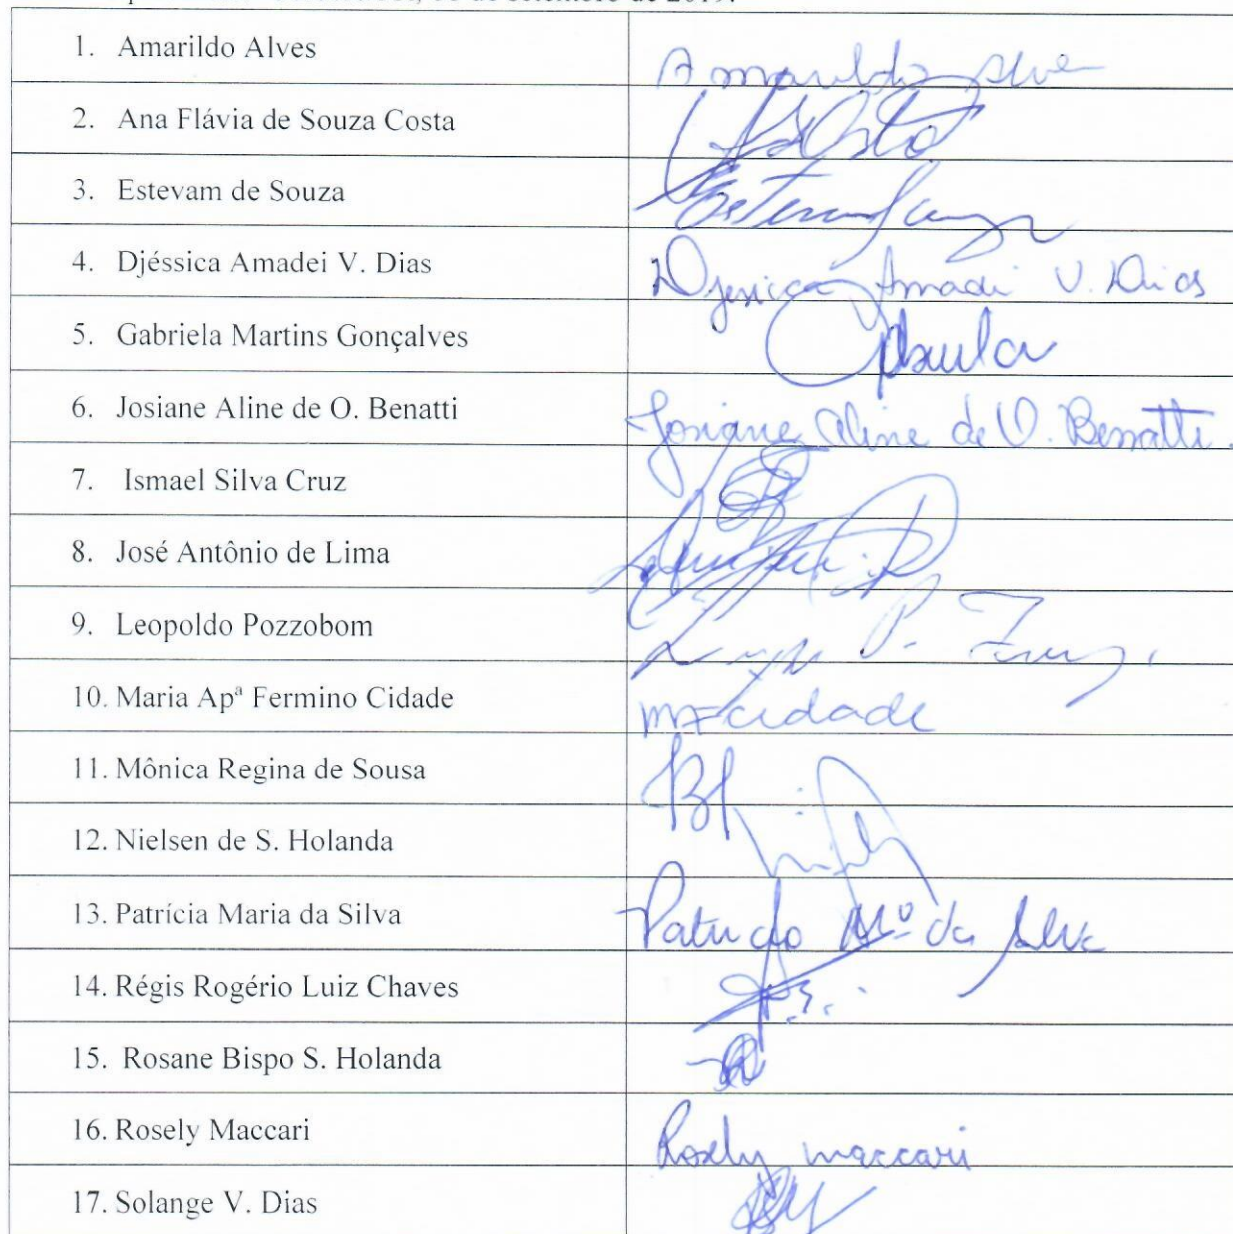 de setembro de 2019.
1. Amarildo Alves
Amarildo Alve
2. Ana Flávia de Souza Costa
3. Estevam de Souza
4. Djéssica Amadei V. Dias
Djessica Amadei V. Dias
5. Gabriela Martins Gonçalves
6. Josiane Aline de O. Benatti
Josiane Aline de O. Benatti.
7. Ismael Silva Cruz
8. José Antônio de Lima
9. Leopoldo Pozzobom
10. Maria Apª Fermino Cidade
MFcidade
11. Mônica Regina de Sousa
12. Nielsen de S. Holanda
13. Patrícia Maria da Silva
Patricia Mª da Silva
14. Régis Rogério Luiz Chaves
15. Rosane Bispo S. Holanda
16. Rosely Maccari
Rosely maccari
17. Solange V. Dias